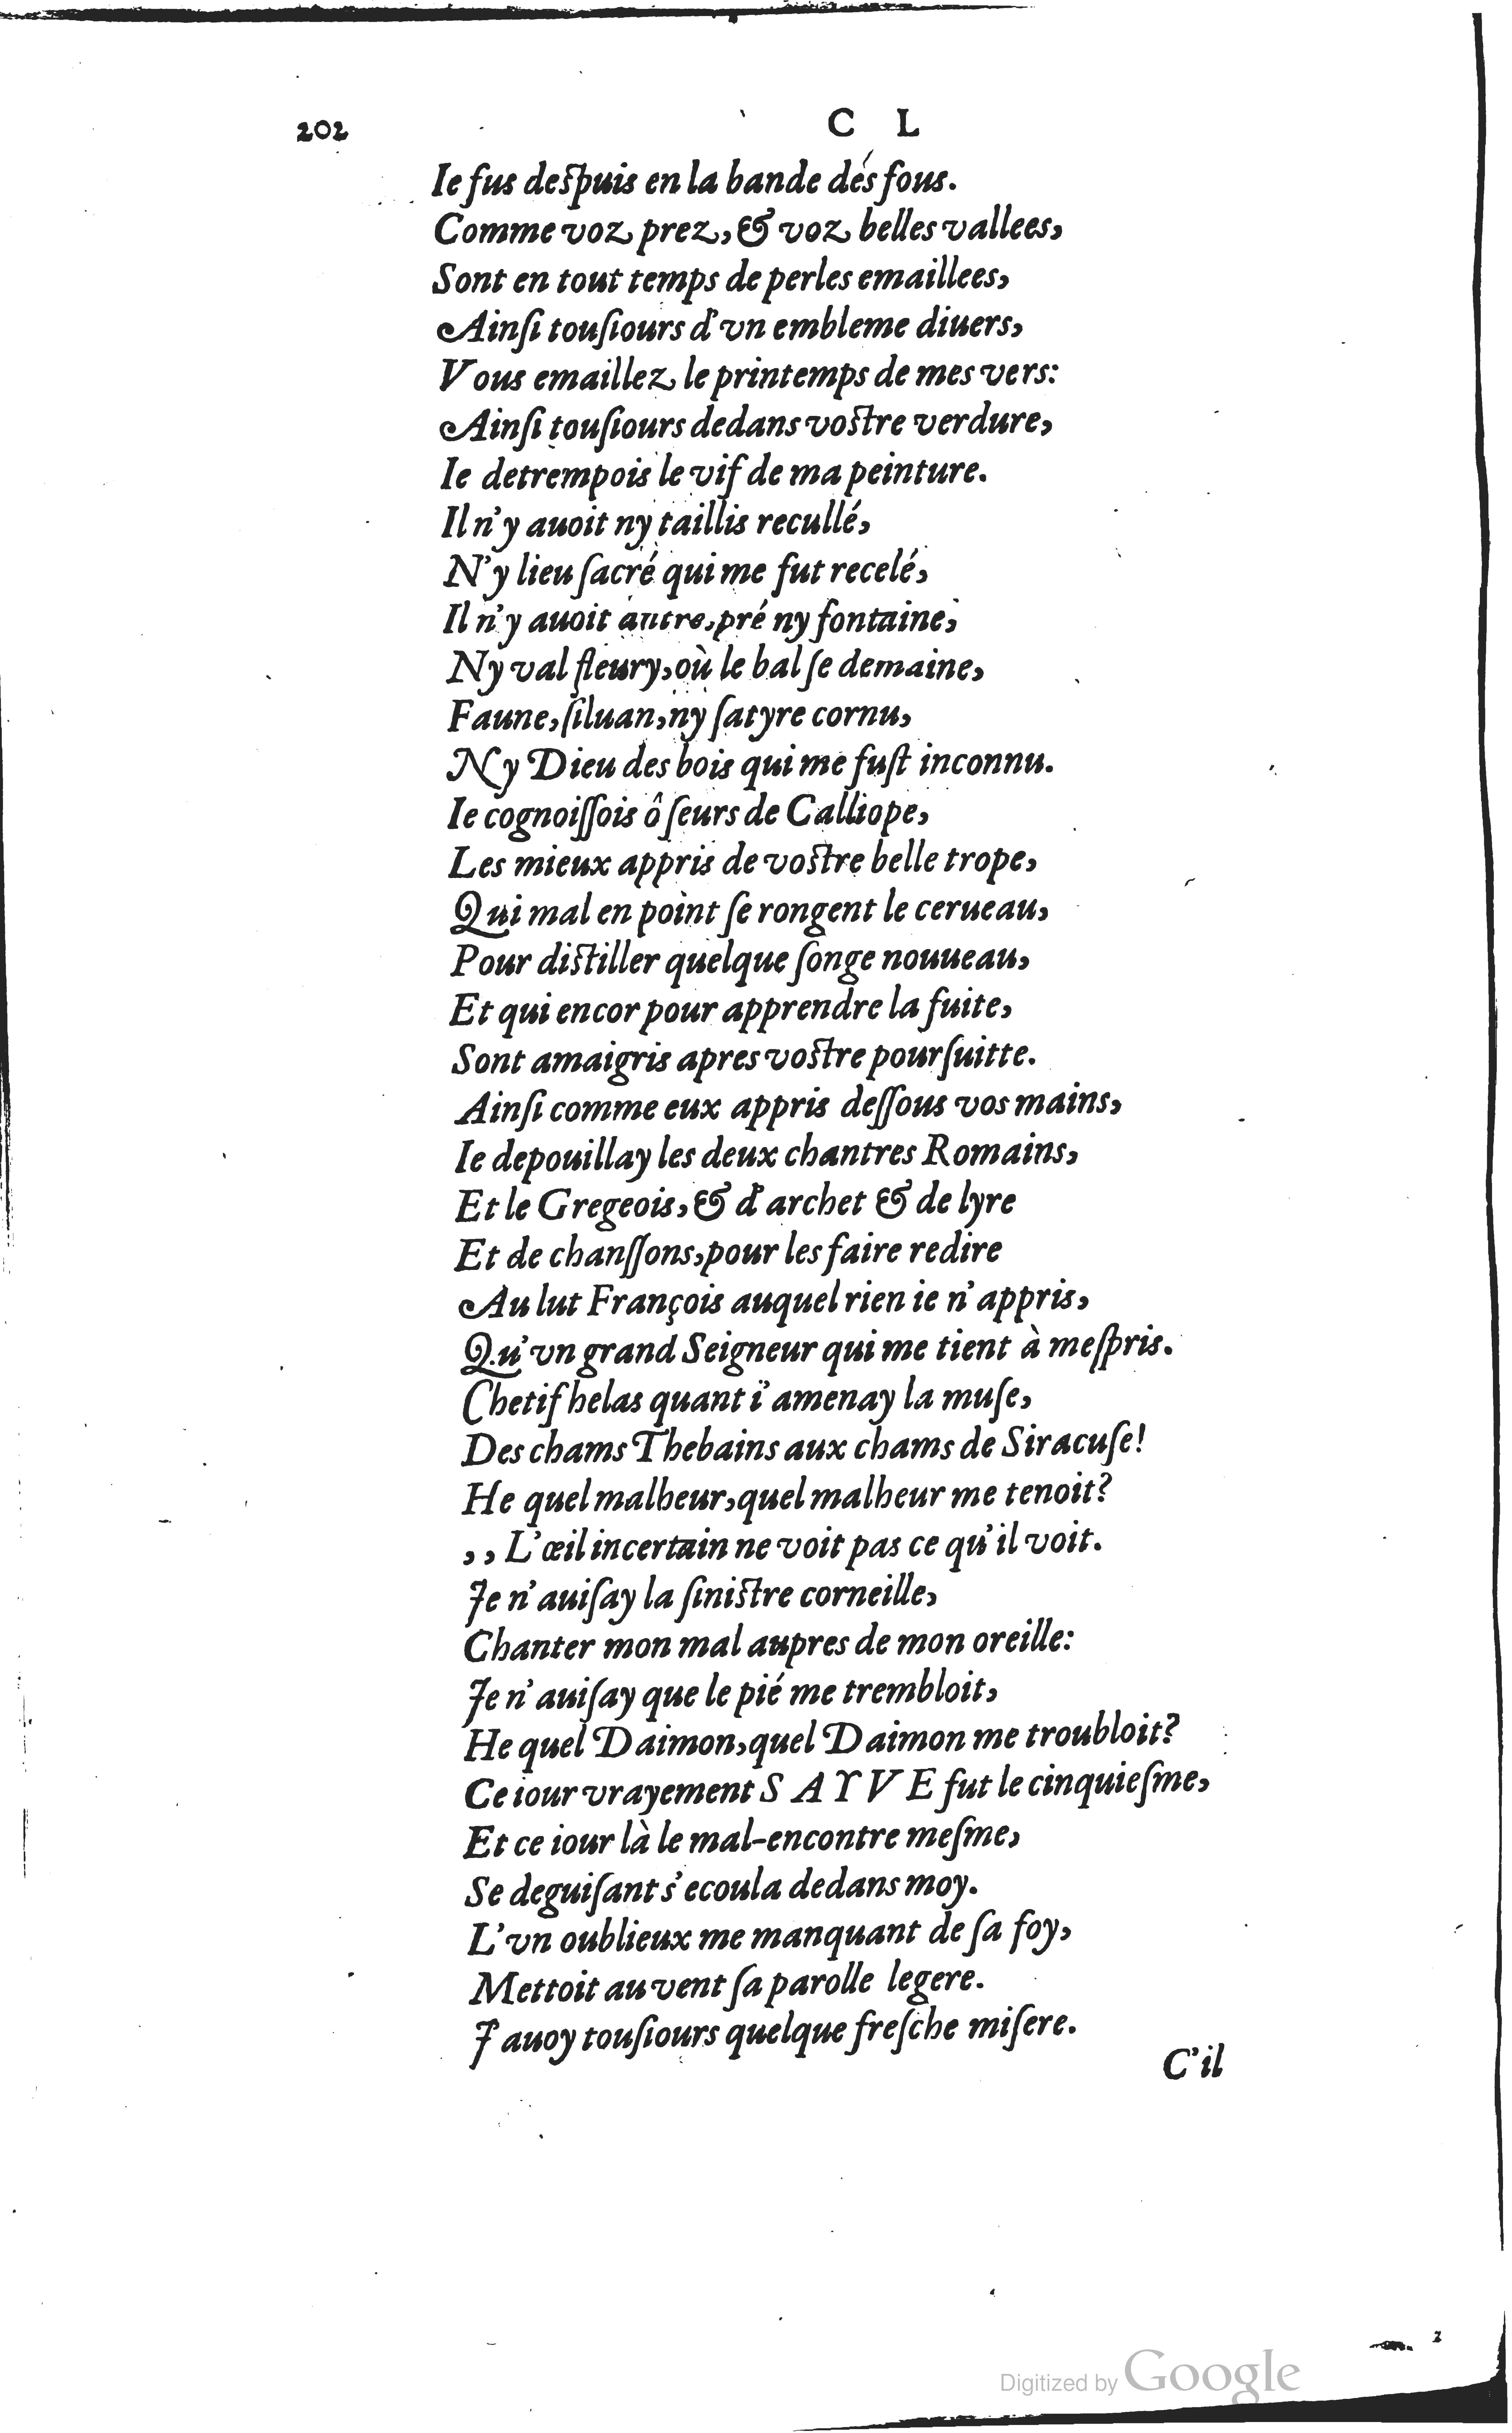 202 C L
Ie fus despuis en la bande dés fous.
Comme voz prez, & voz belles vallees,
Sont en tout temps de perles emaillees,
Ainſi touſiours d'vn embleme diuers,
Vous emaillez le printemps de mes vers:
Ainſi touſiours dedans vostre verdure,
Ie detrempois le vif de ma peinture.
Il n'y auoit ny taillis recullé,
N'y lieu ſacré qui me fut recelé,
Il n'y auoit antre, pré ny fontaine,
Ny val fleury, où le bal ſe demaine,
Faune, ſiluan, ny ſatyre cornu,
Ny Dieu des bois qui me fuſt inconnu.
Ie cognoiſſois ô ſeurs de Calliope,
Les mieux appris de vostre belle trope,
Qui mal en point ſe rongent le cerueau,
Pour distiller quelque ſonge nouueau,
Et qui encor pour apprendre la fuite,
Sont amaigris apres vostre pourſuitte.
Ainſi comme eux appris deſſous vos mains,
Ie depouillay les deux chantres Romains,
Et le Gregeois, & d'archet & de lyre
Et de chanſſons, pour les faire redire
Au lut François auquel rien ie n'appris,
Qu'vn grand Seigneur qui me tient à meſpris.
Chetif helas quant i'amenay la muſe,
Des chams Thebains aux chams de Siracuſe!
He quel malheur, quel malheur me tenoit?
,, L'œil incertain ne voit pas ce qu'il voit.
Je n'auiſay la ſinistre corneille,
Chanter mon mal aupres de mon oreille:
Je n'auiſay que le pié me trembloit,
He quel Daimon, quel Daimon me troubloit?
Ce iour vrayement SAYVE fut le cinquieſme,
Et ce iour là le mal-encontre meſme,
Se deguiſant s'ecoula dedans moy.
L'vn oublieux me manquant de ſa foy,
Mettoit au vent ſa parolle legere.
J'auoy touſiours quelque freſche miſere.
C'il
Digitized by Google